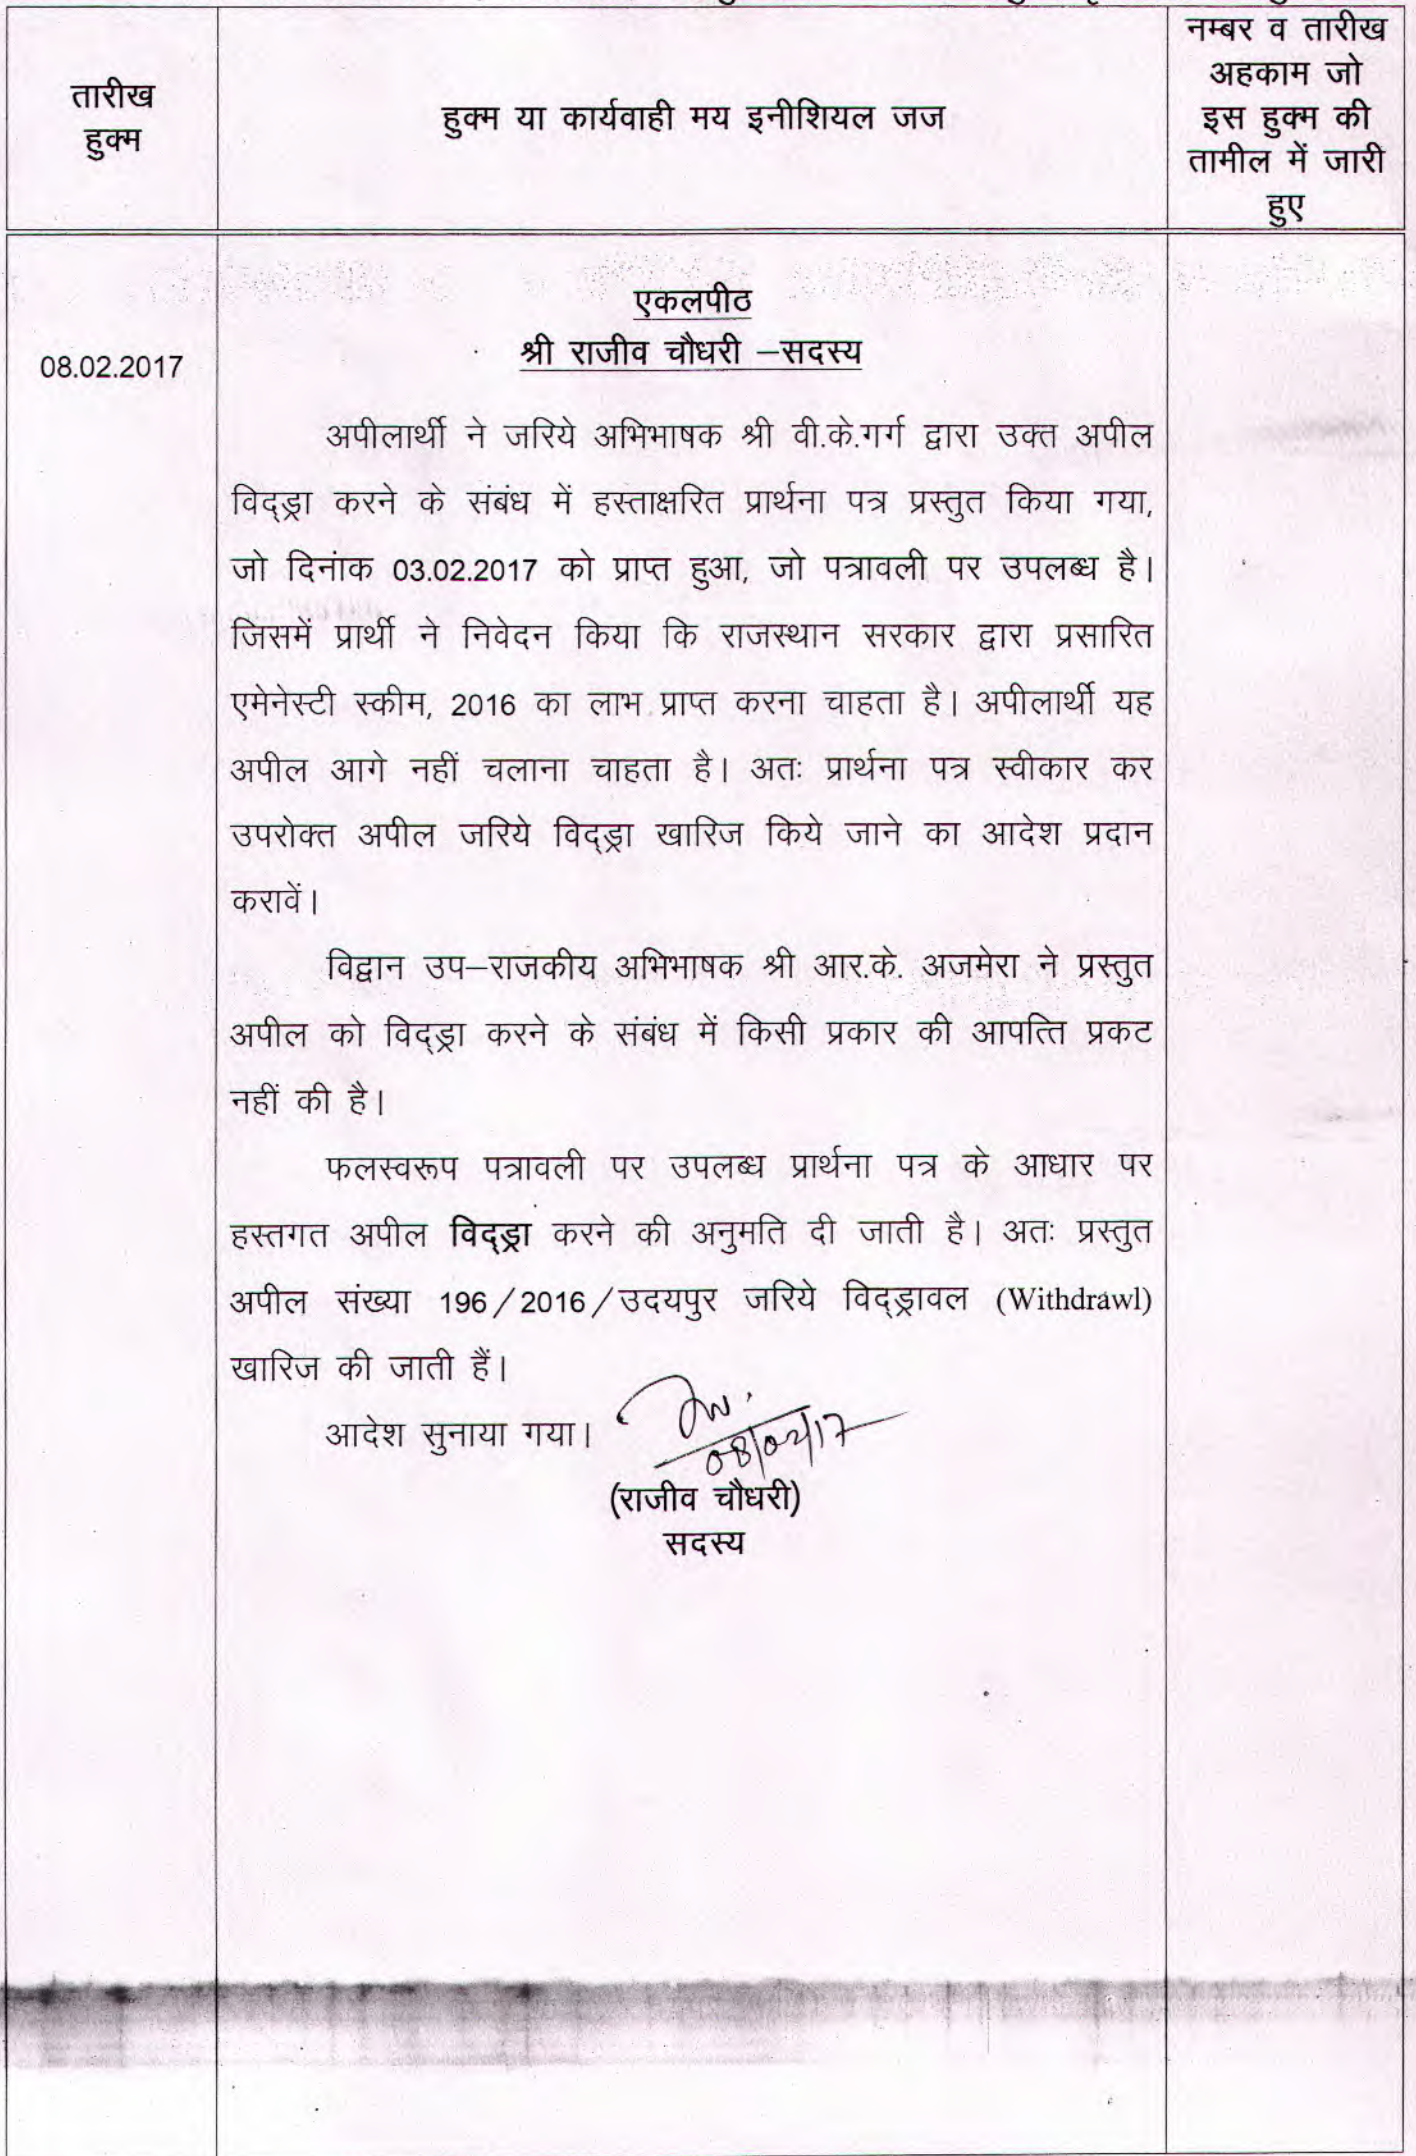 तारीख
हुक्म
हुक्म या कार्यवाही मय इनीशियल जज
नम्बर व तारीख
अहकाम जो
इस हुक्म की
तामील में जारी
हुए
08.02.2017
एकलपीठ
श्री राजीव चौधरी –सदस्य
अपीलार्थी ने जरिये अभिभाषक श्री वी.के.गर्ग द्वारा उक्त अपील
विद्ड्रा करने के संबंध में हस्ताक्षरित प्रार्थना पत्र प्रस्तुत किया गया,
जो दिनांक 03.02.2017 को प्राप्त हुआ, जो पत्रावली पर उपलब्ध है।
जिसमें प्रार्थी ने निवेदन किया कि राजस्थान सरकार द्वारा प्रसारित
एमेनेस्टी स्कीम, 2016 का लाभ प्राप्त करना चाहता है। अपीलार्थी यह
अपील आगे नहीं चलाना चाहता है। अतः प्रार्थना पत्र स्वीकार कर
उपरोक्त अपील जरिये विद्ड्रा खारिज किये जाने का आदेश प्रदान
करावें।
विद्वान उप–राजकीय अभिभाषक श्री आर.के. अजमेरा ने प्रस्तुत
अपील को विद्ड्रा करने के संबंध में किसी प्रकार की आपत्ति प्रकट
नहीं की है।
फलस्वरूप पत्रावली पर उपलब्ध प्रार्थना पत्र के आधार पर
हस्तगत अपील विद्ड्रा करने की अनुमति दी जाती है। अतः प्रस्तुत
अपील संख्या 196/2016/उदयपुर जरिये विद्ड्रावल (Withdrawl)
खारिज की जाती हैं।
आदेश सुनाया गया।
08/02/17
(राजीव चौधरी)
सदस्य